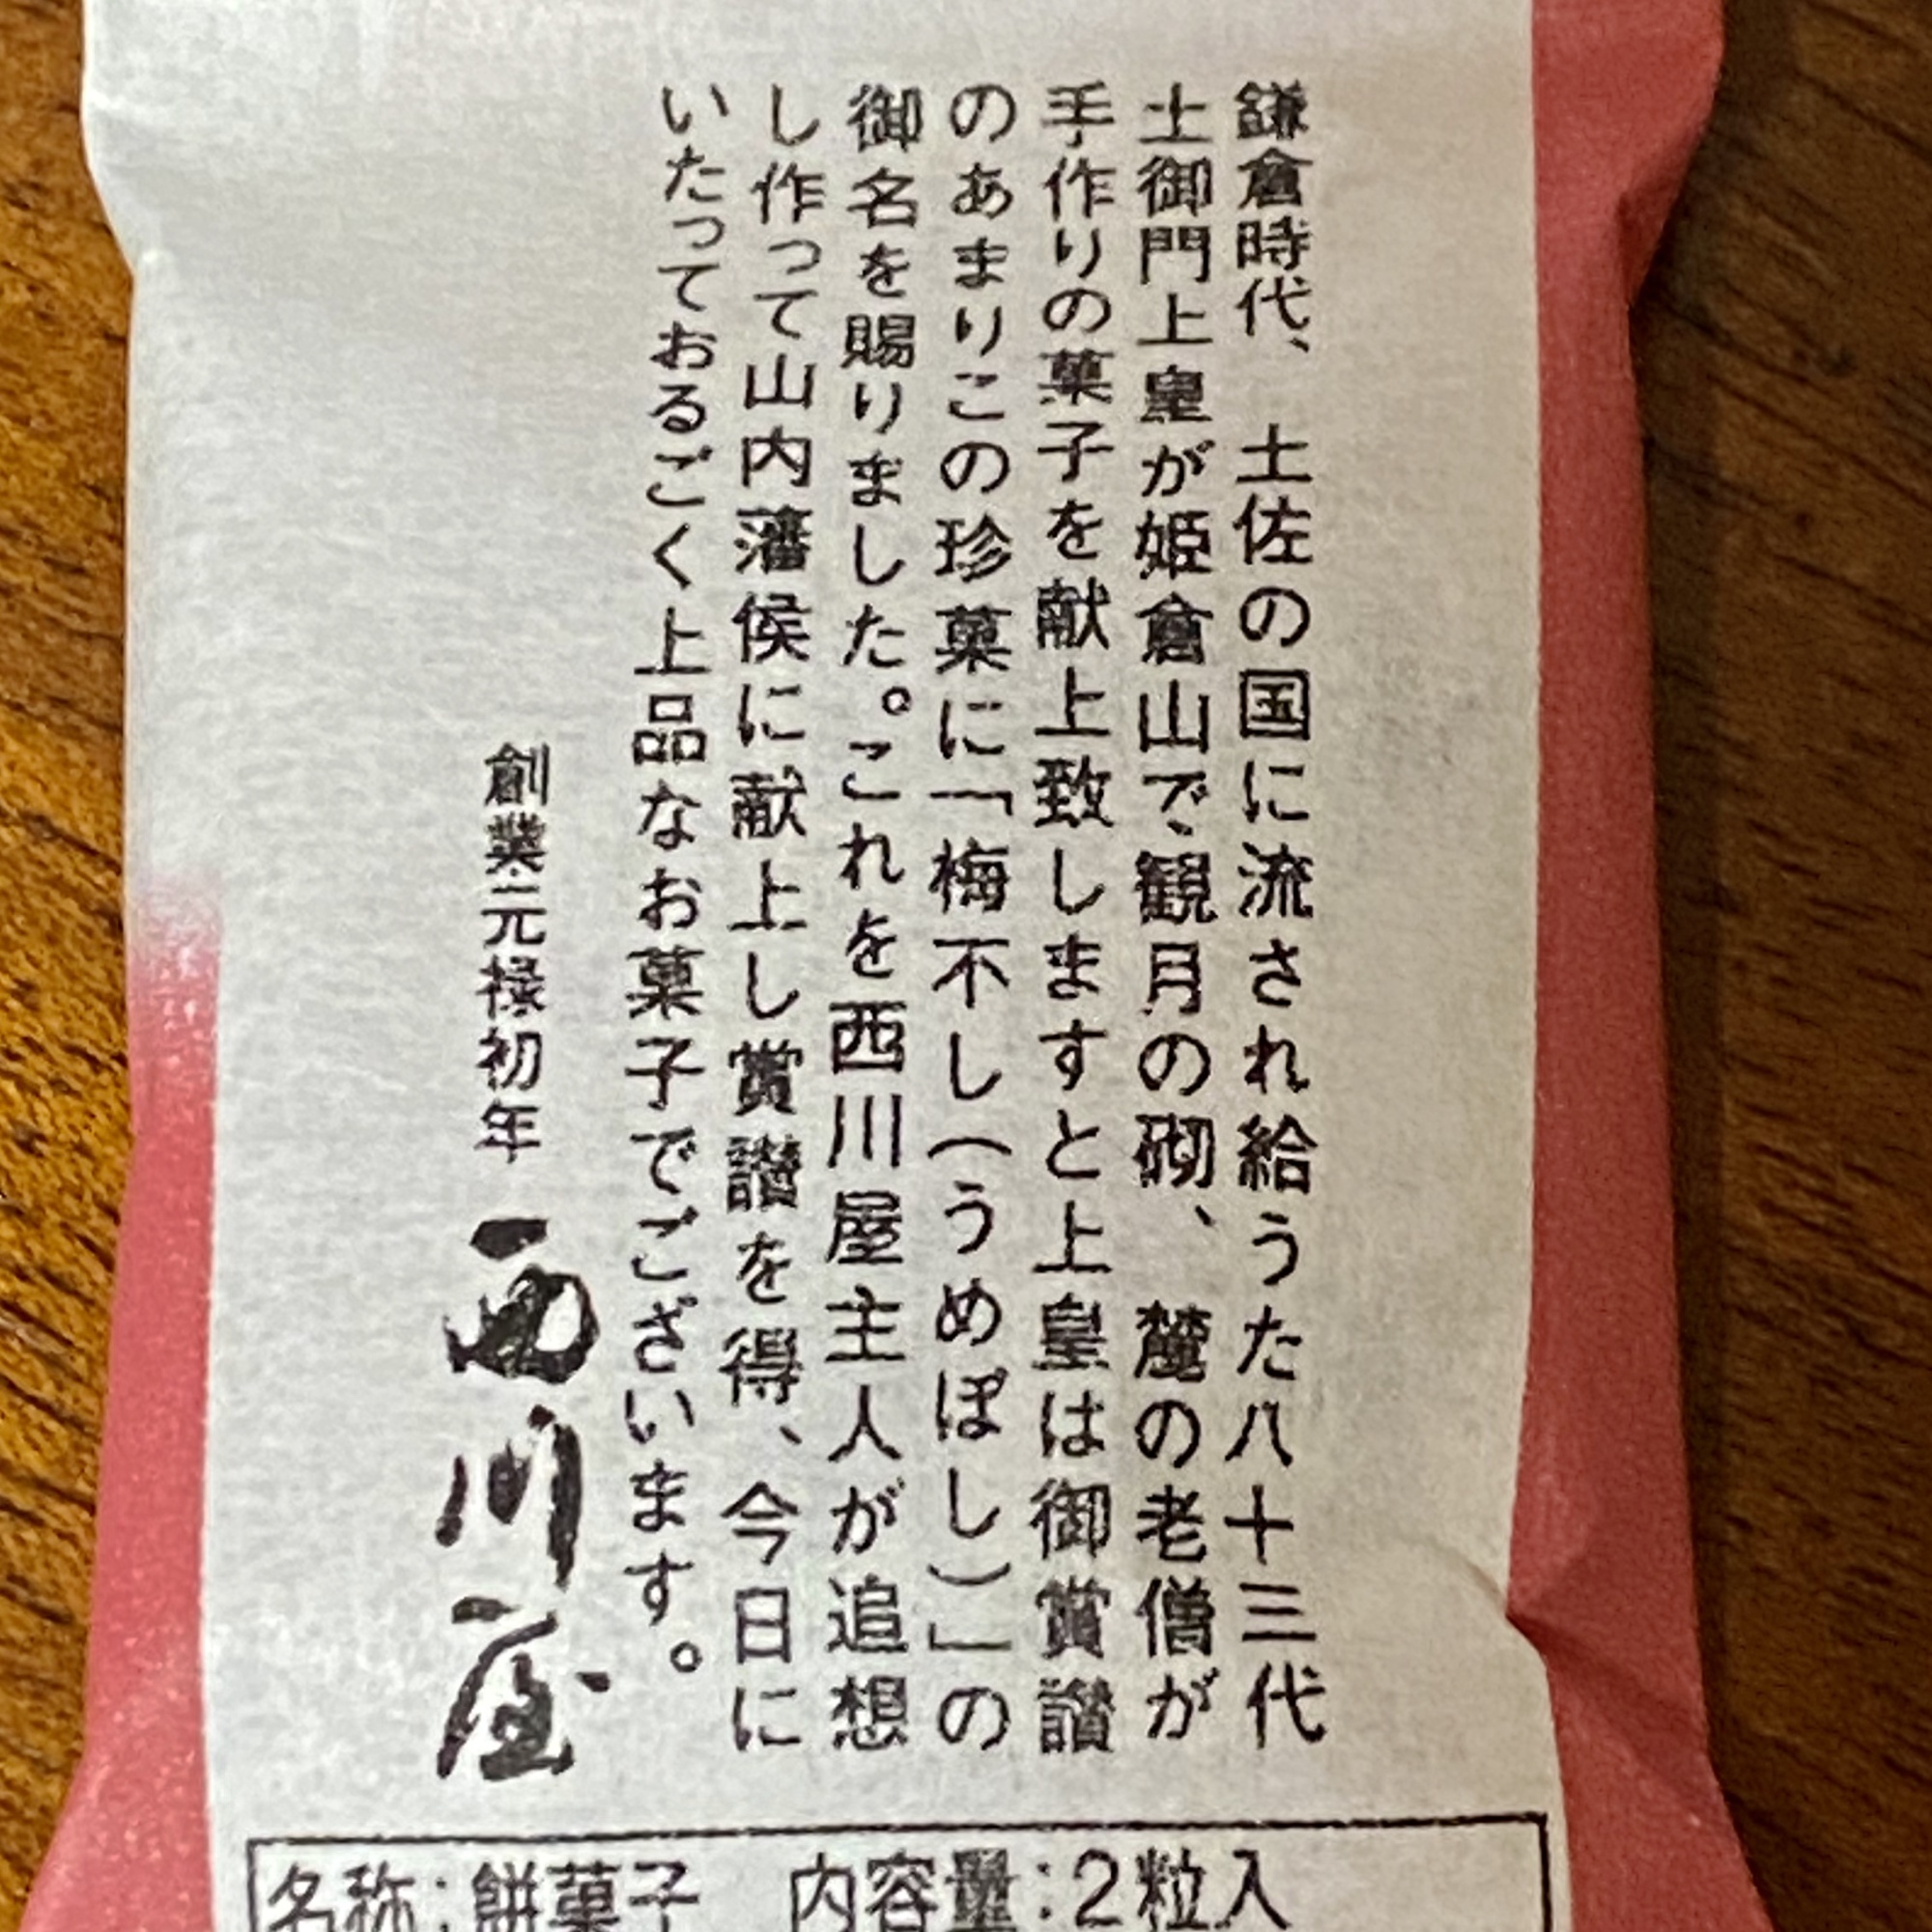 鎌倉時代、土佐の国に流され給うた八十三代
土御門上皇が姫倉山で観月の砌、麓の老僧が
手作りの菓子を献上致しますと上皇は御賞讃
のあまりこの珍菓に「梅不し(うめぼし)」の
御名を賜りました。これを西川屋主人が追想
し作って山内藩候に献上し賞讃を得、今日に
いたっておるごく上品なお菓子でございます。
創業元禄初年 西川屋
名称:餅菓子 内容量:2粒入